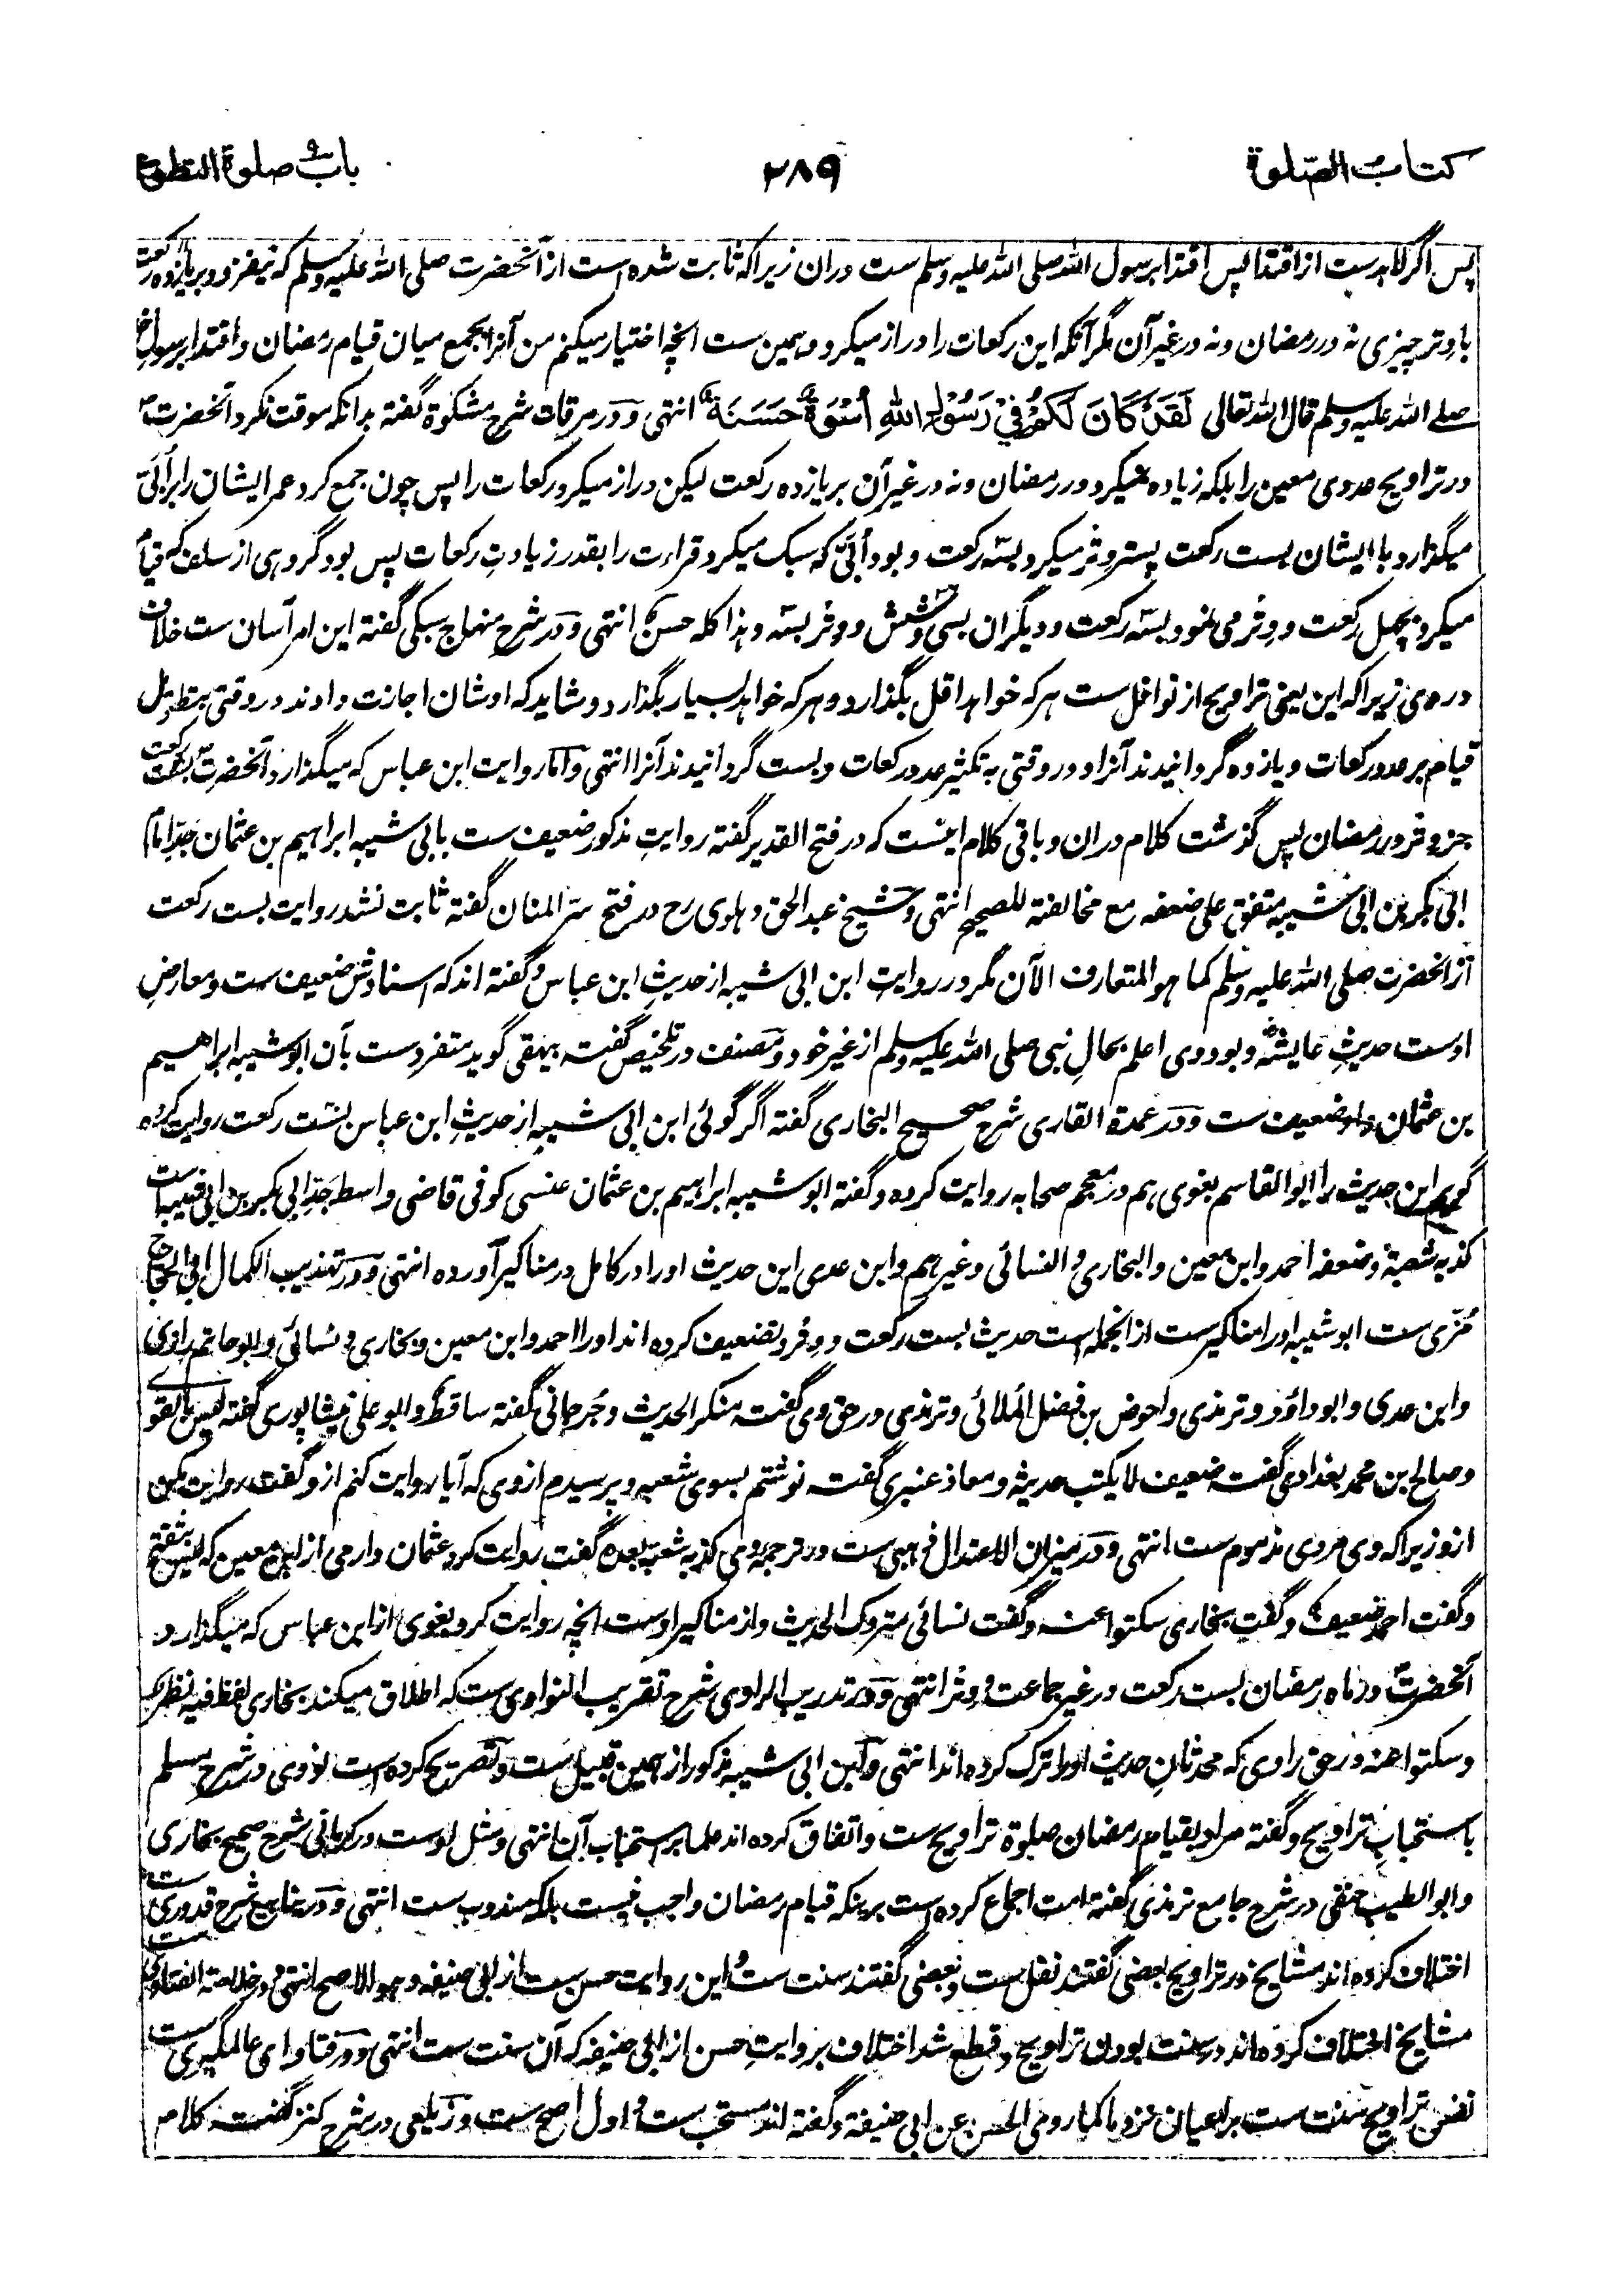 کتاب الصّلوة
۲۸۹
باب صلوة التطوع
پس اگر لابدست از اقتدا پس اقتدا برسول الله صلی الله علیه وسلم ست دران زیراکه ثابت شده است از آنحضرت صلی الله علیه وسلم که نیفزود بر یازده رکعت
با وتر چیزی نه در رمضان و نه در غیر آن مگر آنکه این رکعات را دراز میکرد و همین ست انچه اختیار میکنم من آنرا بجمع میان قیام رمضان و اقتدا برسول خدا
صلے الله علیه وسلم قال الله تعالی لَقَدْ كَانَ لَكُمْ فِيْ رَسُوْلِ اللهِ أُسْوَةٌ حَسَنَةٌ انتهی و در مرقات شرح مشکوة گفته بدانکه موقت نکرد آنحضرت ؐ
در تراویح عددی معین را بلکه زیاده نمیکرد در رمضان و نه در غیر آن بر یازده رکعت لیکن دراز میکرد رکعات را پس چون جمع کرد عمر ایشان را بر اُبَیّ
میگذارد با ایشان بست رکعت پستر وتر میکرد بسه رکعت و بود اُبَیّ که سبک میکرد قراءت را بقدر زیادتِ رکعات پس بود گروهی از سلف که قیام
میکرد بچهل رکعت و وتر می نمود بسه رکعت و دیگران بسی و شش و وتر بسه و هذا کله حسن انتهی و در شرح منهاج سبکی گفته این امر آسان ست خلاف
در وی زیراکه این یعنی تراویح از نوافل ست هرکه خواهد اقل بگذارد و هرکه خواهد بسیار بگذارد و شاید که اوشان اجازت دادند در وقتی بتطویل
قیام بر عدد رکعات و یازده گردانیدند آنرا و در وقتی به تکثیر عدد رکعات و بست گردانیدند آنرا انتهی و اما روایت ابن عباس که میگذارد آنحضرت ؐ بست رکعت
جز وتر در رمضان پس گذشت کلام دران و باقی کلام اینست که در فتح القدیر گفته روایتِ مذکور ضعیف ست بابی شیبه ابراهیم بن عثمان جدِّ امام
ابی بکر بن ابی شیبه متفق علی ضعفه مع مخالفته للصحیح انتهی و شیخ عبدالحق دهلوی رح در فتح سر المنان گفته ثابت نشد روایت بست رکعت
از آنحضرت صلی الله علیه وسلم کما هو المتعارف الآن مگر در روایتِ ابن ابی شیبه از حدیثِ ابن عباس و گفته اند که اسنادش ضعیف ست و معارضِ
اوست حدیثِ عایشه و بود وی اعلم بحالِ نبی صلی الله علیه وسلم از غیر خود و مصنف در تلخیص گفته بیهقی گوید متفردست بآن ابو شیبه ابراهیم
بن عثمان و او ضعیف ست و در عمدة القاری شرح صحیح البخاری گفته اگر گوئی ابن ابی شیبه از حدیثِ ابن عباس بست رکعت روایت کرده
گویم این حدیث را ابو القاسم بغوی هم در معجم صحابه روایت کرده و گفته ابو شیبه ابراهیم بن عثمان عنسی کوفی قاضی واسط جدِّ ابی بکر بن ابی شیبه است
کذبه شعبة و ضعفه احمد و ابن معین و البخاری و النسائی و غیرهم و ابن عدی این حدیث او را در کامل در مناکیر آورده انتهی و در تهذیب الکمال ابی الحجاج
مُزّی ست ابو شیبه او را مناکیرست ازانجمله است حدیث بست رکعت و وتر و تضعیف کرده اند او را احمد و ابن معین و بخاری و نسائی و ابو حاتم رازی
و ابن عدی و ابو داؤد و ترمذی و احوص بن فضل الملائی و ترمذی در حق وی گفته منکر الحدیث و جُرجانی گفته ساقط و ابو علی نیشاپوری گفته لیس بالقوی
و صالح بن محمد بغدادی گفته ضعیف لا یکتب حدیثه و معاذ عنبری گفته نوشتم بسوی شعبه و پرسیدم از وی که آیا روایت کنم ازو گفت روایت مکن
ازو زیراکه وی مردی مذموم ست انتهی و در میزان الاعتدال ذهبی ست در ترجمه وی کذبه شعبة بعده گفت روایت کرد عثمان دارمی از ابن معین که لیس بثقة
و گفت احمد ضعیف و گفت بخاری سکتوا عنه و گفت نسائی متروک الحدیث و از مناکیر اوست انچه روایت کرد بغوی از ابن عباس که میگذارد
آنحضرت ؐ در ماه رمضان بست رکعت در غیر جماعت و وتر انتهی و در تدریب الراوی شرح تقریب النواوی ست که اطلاق میکند بخاری لفظ فیه نظر
و سکتوا عنه در حق راوی که محدثانِ حدیث او را ترک کرده اند انتهی و ابن ابی شیبه مذکور از همین قبیل ست و تصریح کرده است نووی در شرح مسلم
باستحبابِ تراویح و گفته مراد بقیام رمضان صلوة تراویح ست و اتفاق کرده اند علما بر استحباب آن انتهی و مثل اوست در کرمانی شرح صحیح بخاری
و ابو الطیب حنفی در شرح جامع ترمذی گفته امت اجماع کرده ست برینکه قیام رمضان واجب نیست بلکه مندوب ست انتهی و در شرح قدوری ست
اختلاف کرده اند مشایخ در تراویح بعضی گفتند نفل ست و بعضی گفتند سنت ست و این روایت حسن ست از ابی حنیفه و هو الاصح انتهی و در خلاصة الفتاوی ست
مشایخ اختلاف کرده اند در سنت بودن تراویح و قطع شد اختلاف بروایتِ حسن از ابی حنیفه که آن سنت ست انتهی و در فتاوای عالمگیری ست
نفسِ تراویح سنت ست بر اعیان نزد ما کما روی الحسن عن ابی حنیفة و گفته اند مستحب ست و اول اصح ست و زیلعی در شرح کنز گفته کلام